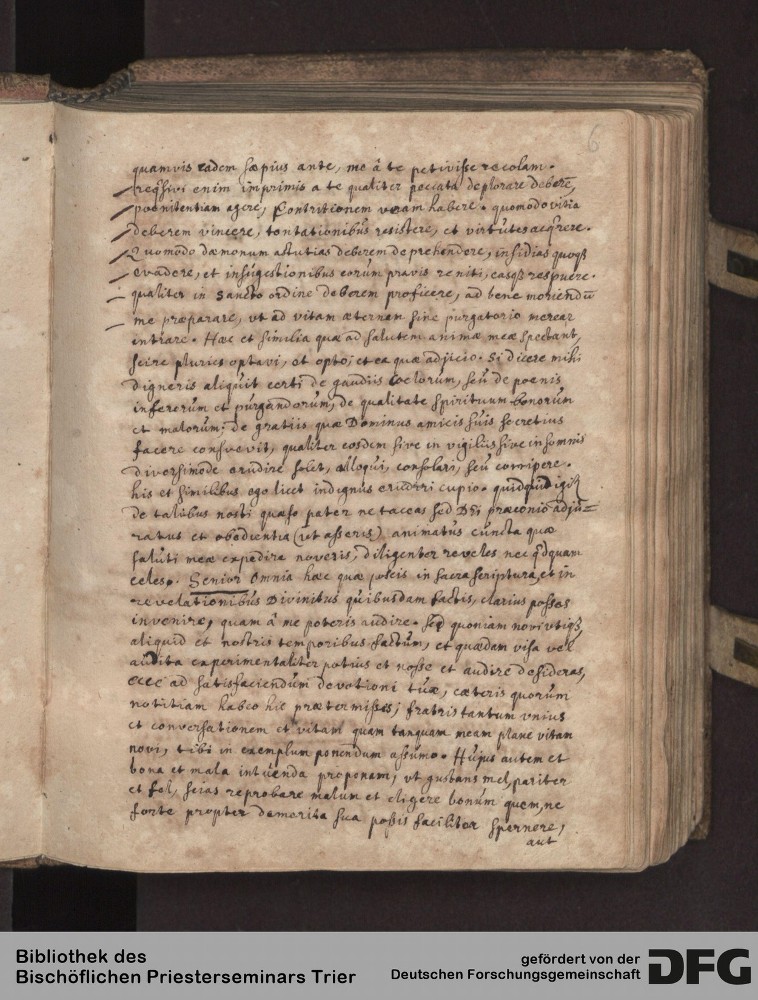 6
quamvis eadem sæpius ante, me à te petivisse recolam.
reqsivi enim imprimis a te qualiter peccata deplorare deberē,
poenitentiam agere, Contritionem veram habere. quomodo vitia
deberem vincere, tentationibus resistere, et virtutes acqrere.
Quomodo dæmonum astutias deberem deprehendere, insidias quoqꝫ
evadere, et insúgestionibus eorúm pravis reniti, easqꝫ respuere.
qualiter in Sancto ordine deberem proficere, ad bene moriendū
me præparare, ut ad vitam æternam sine púrgatorio merear
intrare. Hæc et similia quæ ad salutem animæ meæ spectant,
scire pluries optavi, et opto; et ea quæ adjicio. Si dicere mihi
digneris aliquit certi de gaudiis coelorúm, seú de poenis
infererúm et púrgandorúm, de qualitate spirituum bonorúm
et malorúm; de gratiis quæ Dominus amicis súis secretius
facere consuevit, qualiter eosdem sive in vigiliis sive in somnis
diversimode erudire solet, alloqui, consolari, seú corripere.
his et similibus ego licet indignús erudiri cupio. quidquid igiꝶ
de talibus nosti quæso pater ne taceas sed Dei præconio adjú=
ratus et obedientia (ut asseris) animatús cúncta quæ
salúti meæ expedire noveris, diligenter reveles nec qdquam
celes. Senior Omnia hæc quæ poscis in sacra scriptura, et in
revelationibús Divinitus quibúsdam factis, clarius posses
invenire, quam à me poteris audire. Sed quoniam novi utiqꝫ
aliquid et nostris temporibus factúm, et quædam visa vel
audita experimentaliter potius et nosse et audire desideras,
ecce ad satisfaciendúm devotioni túæ, cæteris quorúm
notitiam habeo hic prætermissis; fratris tantum unius
et conversationem et vitam quam tanquam meam plane vitam
novi, tibi in exemplum ponendum assumo. Hujus autem et
bona et mala intúenda proponam, ut gustans mel, pariter
et fel, scias reprobare malum et eligere bonúm quem, ne
forte propter demerita sua possis faciliter spernere,
aut
Bibliothek des
Bischöflichen Priesterseminars Trier
gefördert von der
Deutschen Forschungsgemeinschaft
DFG